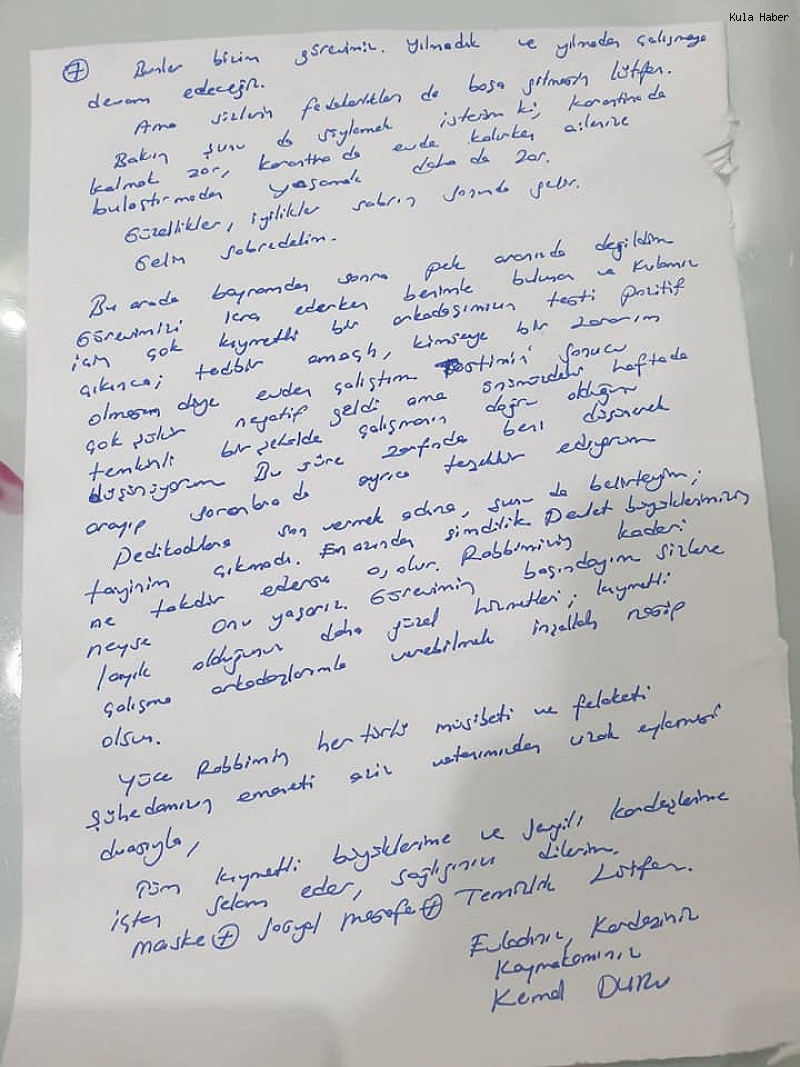 Kula Haber
7 Bunlar bizim görevimiz. Yılmadık ve yılmadan çalışmaya
devam edeceğiz.
Ama sizlerin fedakarlıkları da boşa gitmesin lütfen.
Bakın şunu da söylemek isterim ki; karantinada
kalmak zor, karantinada evde kalırken ailenize
bulaştırmadan yaşamak daha da zor.
Güzellikler, iyilikler sabrın sonunda gelir.
Gelin sabredelim.
Bu arada bayramdan sonra pek aranızda değildim
Görevimizi icra ederken benimle bulunan ve Kulamız
için çok kıymetli bir arkadaşımızın testi pozitif
çıkınca; tedbir amaçlı, kimseye bir zararım
olmasın diye evden çalıştım Testimin sonucu
çok şükür negatif geldi ama önümüzdeki haftada
temkinli bir şekilde çalışmanın doğru olduğunu
düşünüyorum Bu süre zarfında beni düşünerek
arayıp soranlara da ayrıca teşekkür ediyorum
Dedikodulara son vermek adına, şunu da belirteyim;
tayinim çıkmadı. En azından şimdilik Devlet büyüklerimizin
ne takdir ederse o, olur. Rabbimizin kaderi
neyse onu yaşarız. Görevimin başındayım sizlere
layık olduğunuz daha güzel hizmetleri; kıymetli
çalışma arkadaşlarımla verebilmek inşallah nasip
olsun.
Yüce Rabbimin her türlü müsibeti ve felaketi
Şühedamızın emaneti aziz vatanımızdan uzak eylemesi
duasıyla,
Tüm kıymetli büyüklerime ve sevgili kardeşlerime
içten selam eder, sağlığınızı dilerim.
Maske + Sosyal Mesafe + Temizlik Lütfen.
Evladınız, Kardeşiniz
Kaymakamınız
Kemal DURU